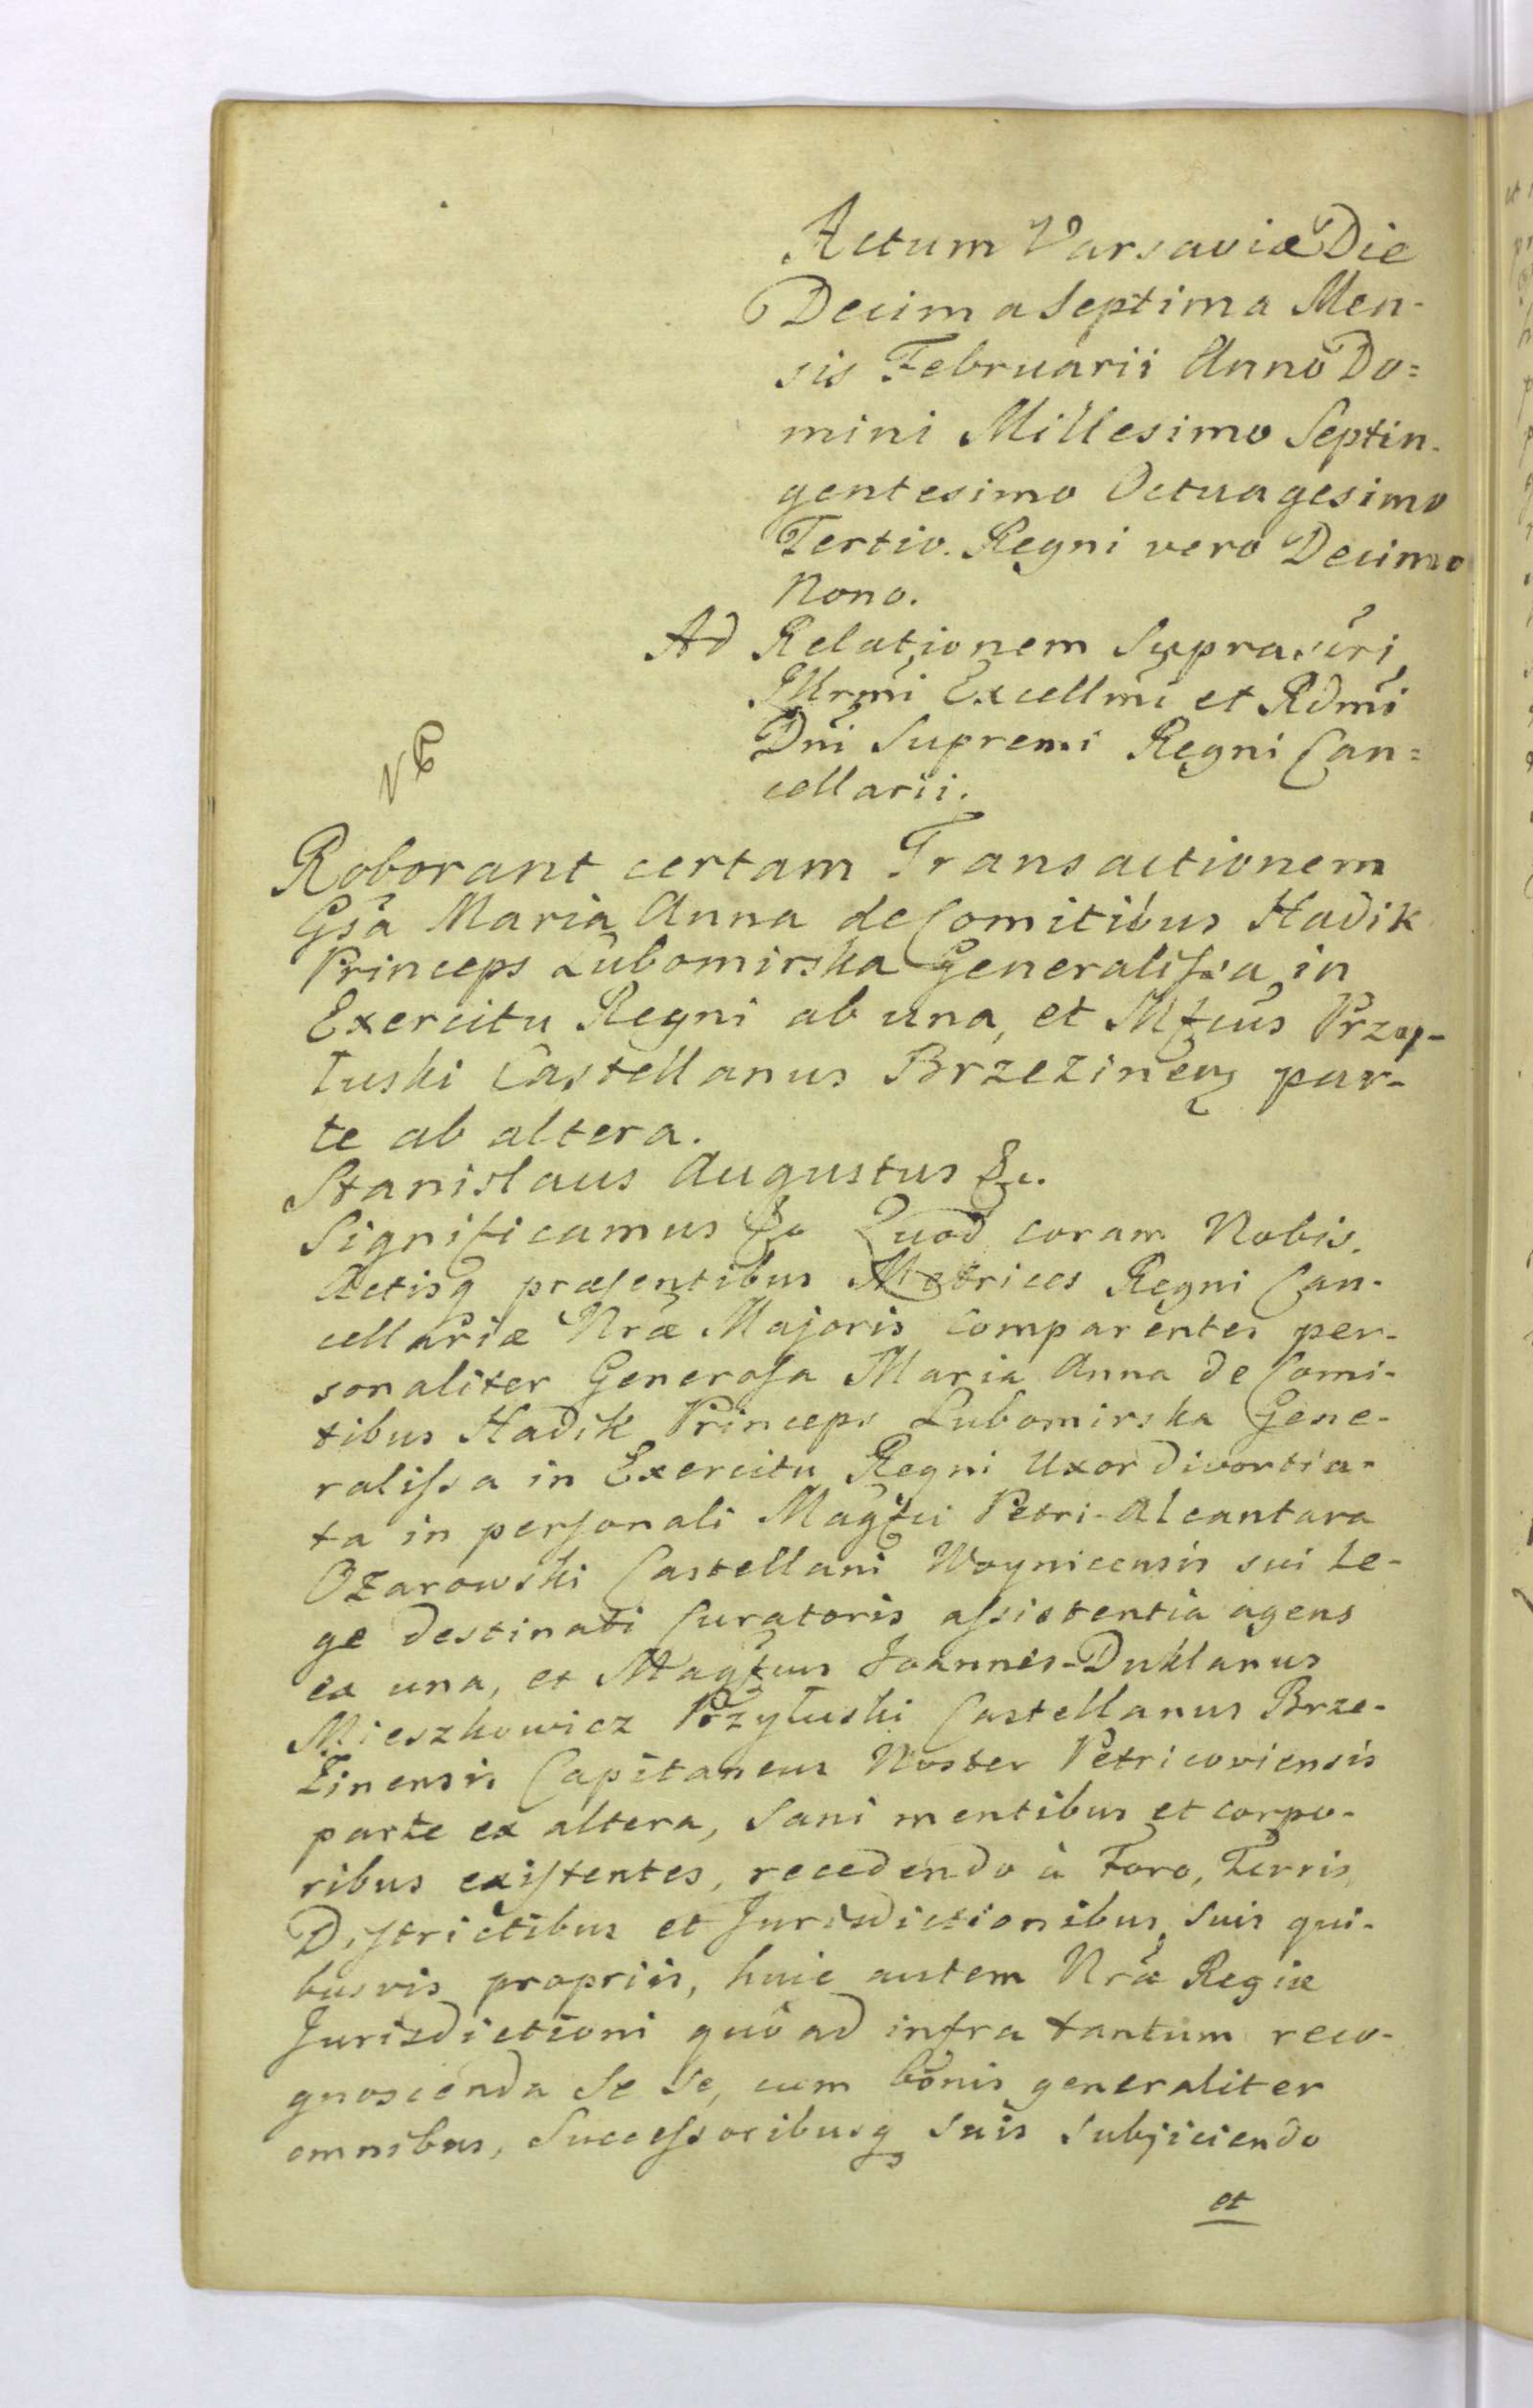 Actum Varsaviæ Die
Decima Septima Men-
sis Februarii Anno Do=
mini Millesimo Septin-
gentesimo Octuagesimo
Tertio. Regni vero Decimo
Nono.
Ad Relationem Suprascri
Illrmi Excellmi et Rdmi
Dni Supremi Regni Can=
cellarii.
NB
Roborant certam Transactionem
Gsa Maria Anna de Comitibus Hadik
Princeps Lubomirska Generaliſsa in
Exercitu Regni ab una, et Mfcus Przy-
łuski Castellanus Brzezinen par-
te ab altera.
Stanislaus Augustus &c.
Significamus &c Quod coram Nobis.
Actisq præſentibus Metrices Regni Can-
cellariæ Nræ Majoris comparentes per-
sonaliter Generoſa Maria Anna de Comi-
tibus Hadik Princeps Lubomirska Gene-
raliſsa in Exercitu Regni Uxor divortia-
ta in perſonali Magfci Petri-Alcantara
Ożarowski Castellani Woynicensis sui le-
ge destinati Curatoris aſsistentia agens
ex una, et Magfcus Joannes-Duklanus
Mieszkowicz Przyłuski Castellanus Brze-
zinensis Capitaneus Noster Petricoviensis
parte ex altera, Sani mentibus et corpo-
ribus exiſtentes, recedendo à Foro, Terris,
Diſtrictibus et Jurisdictionibus suis qui-
busvis propriis, huic autem Nræ Regiæ
Jurisdictioni quo ad infra tantum reco-
gnoscenda Se Se, cum bonis generaliter
omnibus, Succeſsoribusq Suis Subjiciendo
et